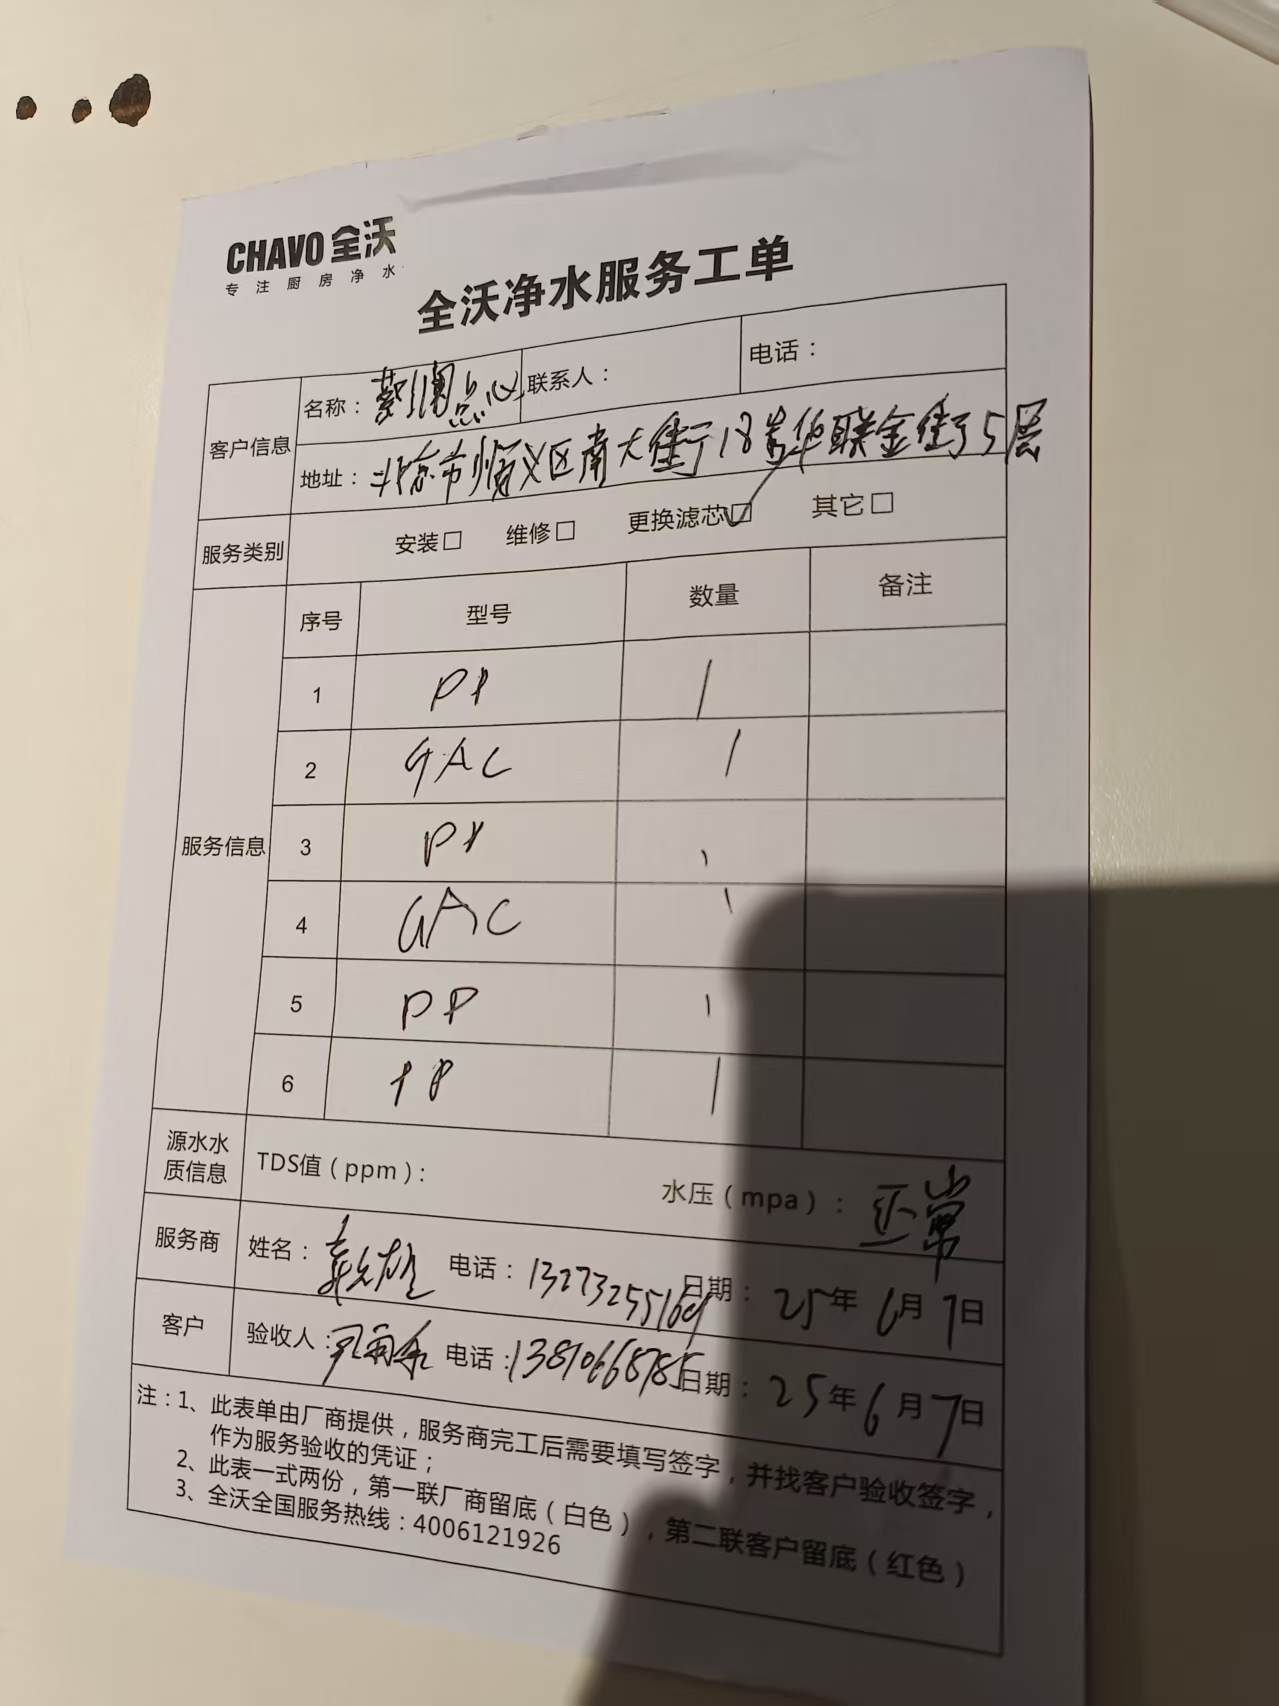 CHAVO 全沃
专注厨房净水
全沃净水服务工单
客户信息 名称：点心 联系人： 电话：
地址：北京市顺义区南大街18号华联金街5层
服务类别 安装□ 维修□ 更换滤芯☑ 其它□
服务信息 序号 型号 数量 备注
1 PP 1
2 GAC 1
3 PP 1
4 GAC 1
5 PP 1
6 1
源水水质信息 TDS值（ppm）： 水压（mpa）：正常
服务商 姓名： 电话：13273255169 日期：25年6月7日
客户 验收人： 电话：13810668785 日期：25年6月7日
注：1、此表单由厂商提供，服务商完工后需要填写签字，并找客户验收签字，
作为服务验收的凭证；
2、此表一式两份，第一联厂商留底（白色），第二联客户留底（红色）
3、全沃全国服务热线：4006121926